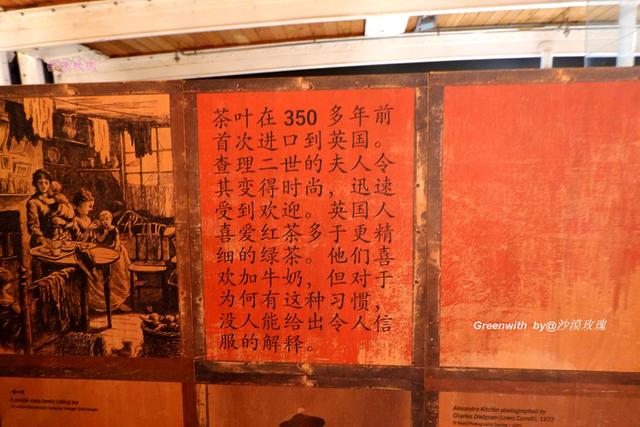 茶叶在 350 多年前
首次进口到英国。
查理二世的夫人令
其变得时尚，迅速
受到欢迎。英国人
喜爱红茶多于更精
细的绿茶。他们喜
欢加牛奶，但对于
为何有这种习惯，
没人能给出令人信
服的解释。
Greenwith by@沙漠玫瑰
A middle class family taking tea
Alexandra Kitchin photographed by
Charles Dodgson (Lewis Carroll), 1873